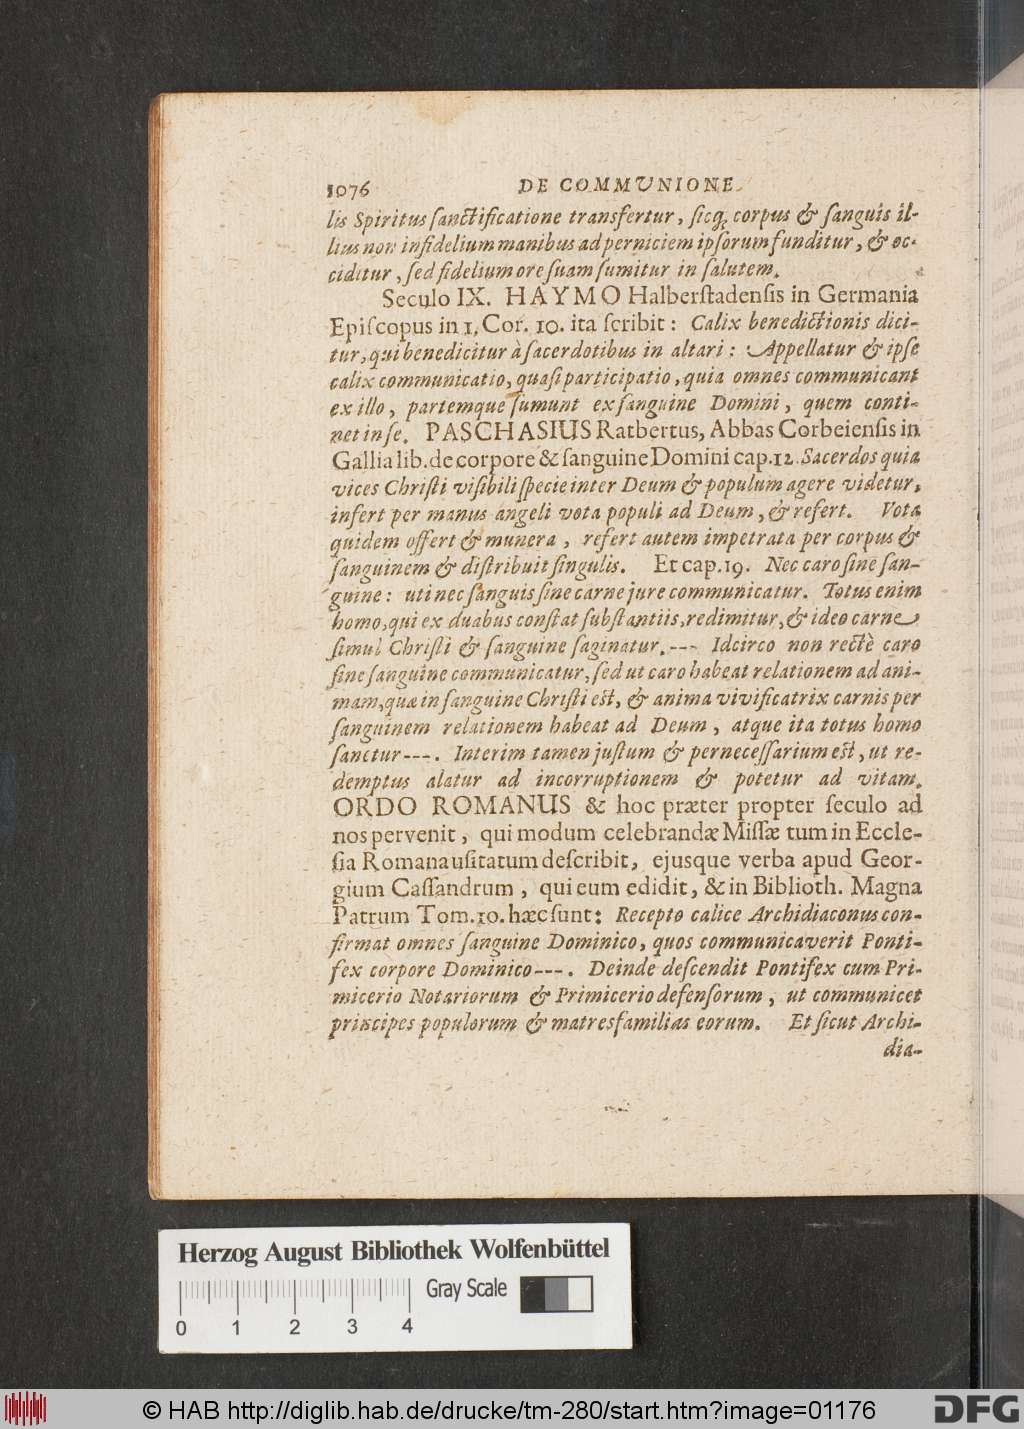 1076 DE COMMUNIONE
lis Spiritus sanctificatione transfertur, sicq; corpus & sanguis il-
lius non infidelium manibus ad perniciem ipsorum funditur, & oc-
ciditur, sed fidelium ore suam sumitur in salutem.
Seculo IX. HAYMO Halberstadensis in Germania
Episcopus in 1. Cor. 10. ita scribit: Calix benedictionis dici-
tur, qui benedicitur à sacerdotibus in altari: Appellatur & ipse
calix communicatio, quasi participatio, quia omnes communicant
ex illo, partemque sumunt ex sanguine Domini, quem conti-
net in se. PASCHASIUS Ratbertus, Abbas Corbeiensis in
Gallia lib. de corpore & sanguine Domini cap. 12. Sacerdos quia
vices Christi visibili specie inter Deum & populum agere videtur,
infert per manus angeli vota populi ad Deum, & refert. Vota
quidem offert & munera, refert autem impetrata per corpus &
sanguinem & distribuit singulis. Et cap. 19. Nec caro sine san-
guine: uti nec sanguis sine carne jure communicatur. Totus enim
homo, qui ex duabus constat substantiis, redimitur, & ideo carne
simul Christi & sanguine saginatur.--- Idcirco non rectè caro
sine sanguine communicatur, sed ut caro habeat relationem ad ani-
mam, quæ in sanguine Christi est, & anima vivificatrix carnis per
sanguinem relationem habeat ad Deum, atque ita totus homo
sanctur---. Interim tamen justum & pernecessarium est, ut re-
demptus alatur ad incorruptionem & potetur ad vitam.
ORDO ROMANUS & hoc præter propter seculo ad
nos pervenit, qui modum celebrandæ Missæ tum in Eccle-
sia Romana usitatum describit, ejusque verba apud Geor-
gium Cassandrum, qui eum edidit, & in Biblioth. Magna
Patrum Tom. 10. hæc sunt: Recepto calice Archidiaconus con-
firmat omnes sanguine Dominico, quos communicaverit Ponti-
fex corpore Dominico---. Deinde descendit Pontifex cum Pri-
micerio Notariorum & Primicerio defensorum, ut communicet
principes populorum & matresfamilias eorum. Et sicut Archi-
dia-
Herzog August Bibliothek Wolfenbüttel
Gray Scale
0 1 2 3 4
© HAB http://diglib.hab.de/drucke/tm-280/start.htm?image=01176
DFG